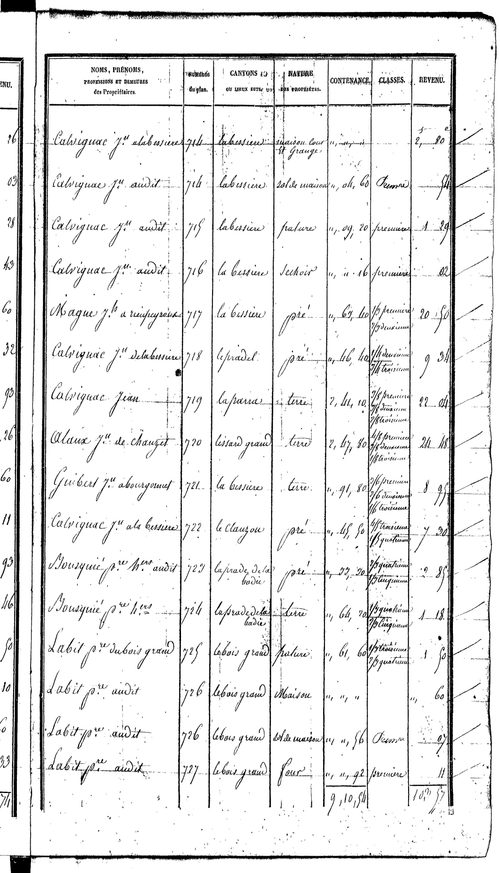 NOMS, PRÉNOMS, PROFESSIONS ET DEMEURES des Propriétaires. NUMÉROS du plan. CANTONS OU LIEUX DITS NATURE DES PROPRIÉTÉS. CONTENANCE. CLASSES. REVENU.
Calvignac Jn alabessiere 714 labessiere maison cour et Grange " " " 2, 80
Calvignac Jn audit 714 labessiere sol de maison ", 04, 60 54
Calvignac Jn audit 715 labessiere pature ", 09, 20 premiere 1 29
Calvignac Jn audit 716 la bessiere sechoir ", " 16 premiere 02
Maque Jh a rieupeyroux 717 la bessiere pré ", 63, 40 1/3 premiere 2/3 deuxieme 20 50
Calvignac Jn delabessiere 718 le pradel pré ", 46, 40 deuxieme troisieme 9 34
Calvignac Jean 719 laparra terre 2, 41, 10 premiere deuxieme troisieme 22 04
Alaux Jn de chauzet 720 lessard grand terre 2, 47, 80 premiere deuxieme troisieme 24 48
Guibert Jn abourgonnet 721 la bessiere terre ", 91, 80 premiere deuxieme troisieme 8 95
Calvignac Jn ala bessiere 722 le clauzou pré ", 45, 50 troisieme quatrieme 7 30
Bousquié pre hers audit 723 laprade dela bodie pré ", 33, 20 1/3 quatrieme 2/3 cinquieme 2 85
Bousquié pre hers 724 laprade dela bodie terre ", 64, 20 1/3 quatrieme 2/3 cinquieme 1 18
Labit pre dubois grand 725 lebois grand pature ", 61, 60 1/3 troisieme 2/3 quatrieme 1 50
Labit pre audit 726 lebois grand Maison ", ", " ", 60
Labit pre audit 726 lebois grand sol de maison ", ", 56 07
Labit pre audit 727 lebois grand four ", ", 92 premiere 11
9, 10, 54 57